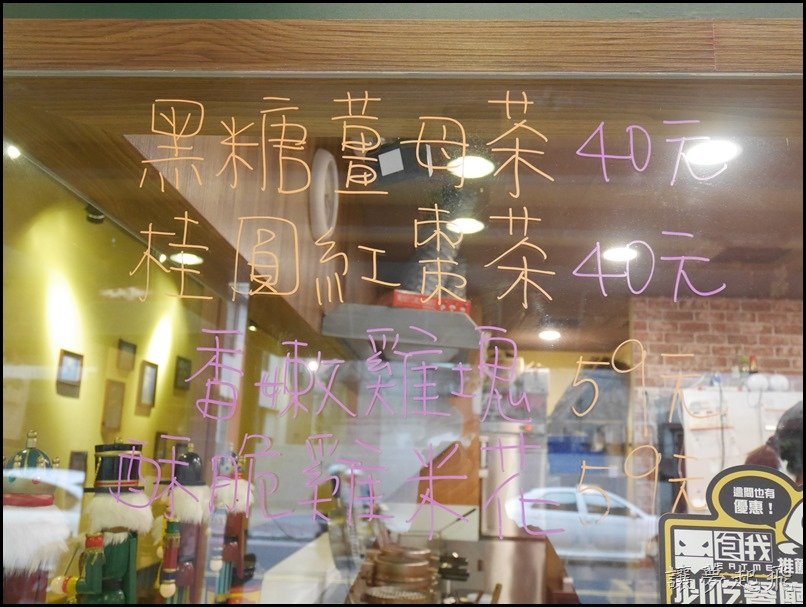 黑糖薑母茶 40元
桂圓紅棗茶 40元
香嫩雞塊 59元
酥脆雞米花 59元
週間也有
優惠！
食我
EATME
推薦
讓夢起飛